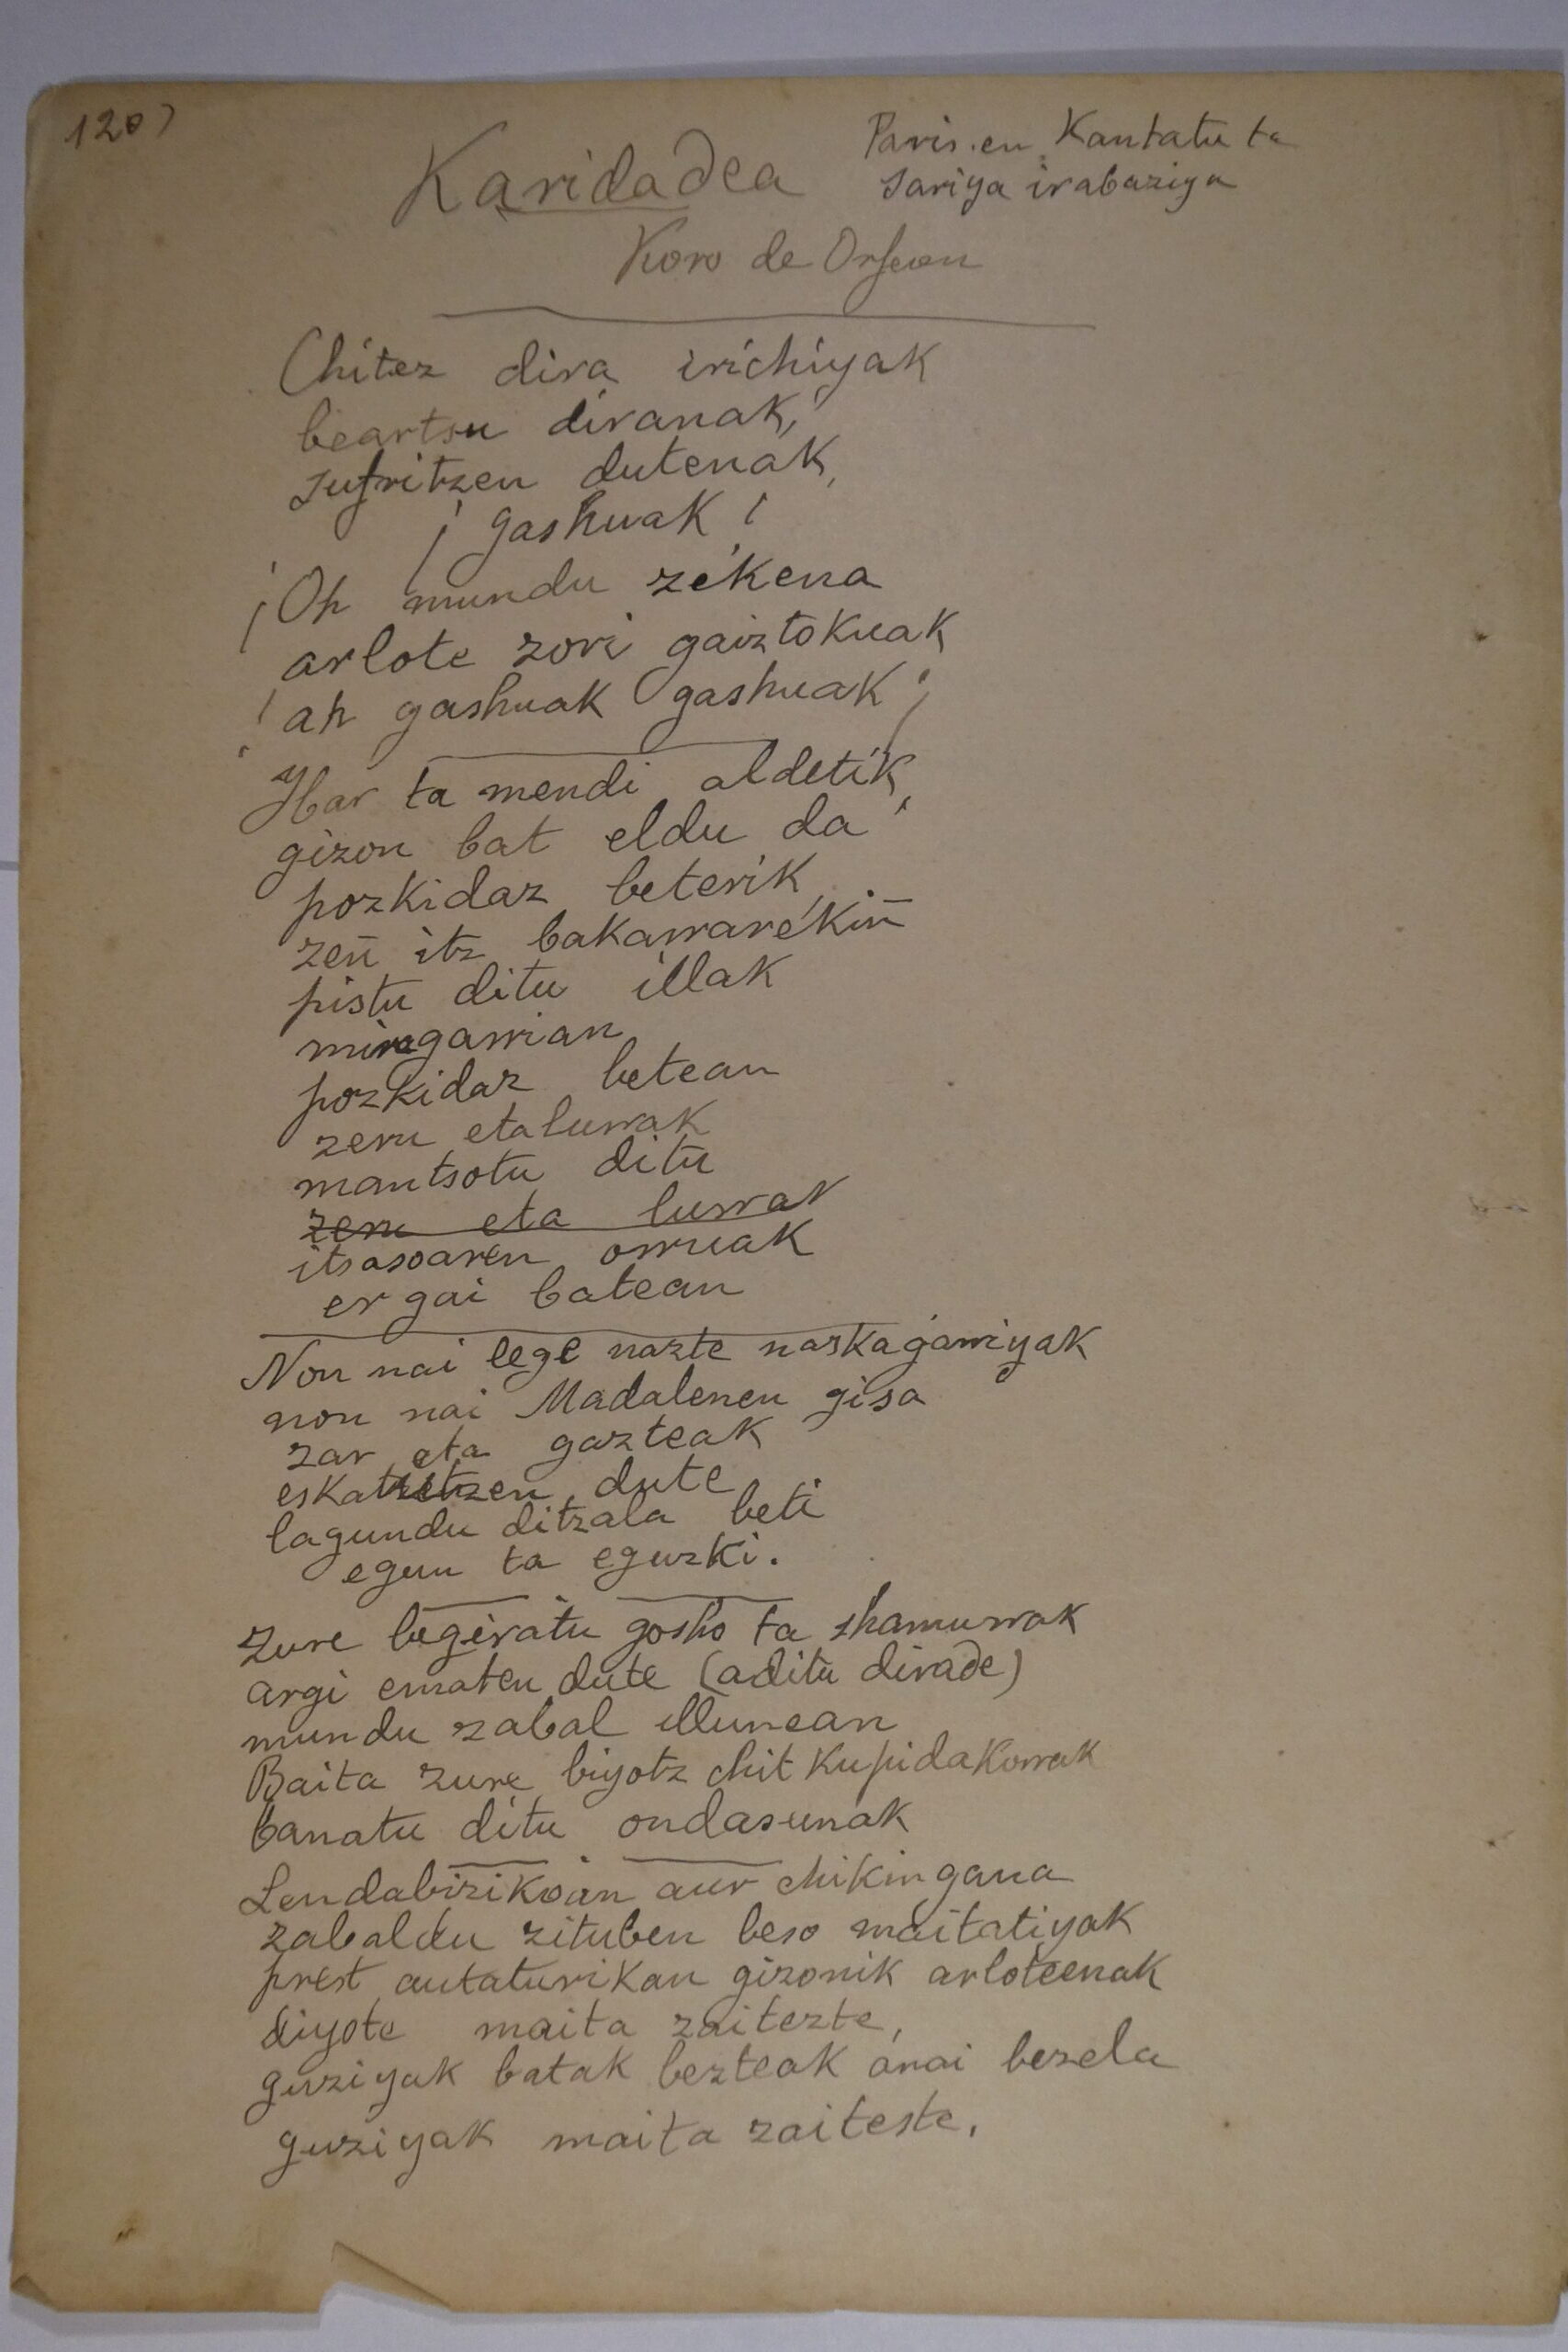 120)
Karidadea
Paris.en Kantatu ta
sariya irabaziya
Koro de Orfeon
Chitez dira irichiyak
beartsu diranak,
sufritzen dutenak,
¡ gashuak !
¡Oh mundu zekena
arlote zori gaiztokuak
¡ ah gashuak gashuak !
Ibar ta mendi aldetik,
gizon bat eldu da
pozkidaz beterik
zeñ itz bakarrarekiñ
pistu ditu illak
miragarrian
pozkidaz betean
zeru eta lurrak
mantsotu ditu
zeru eta lurrak
itsasoaren orruak
er gai batean
Non nai lege nazte nazkagarriyak
non nai Madalenen gisa
zar eta gazteak
eskatzen dute
lagundu ditzala beti
egun ta eguzki.
Zure begiratu gosho ta shamurrak
argi ematen dute (aditu dirade)
mundu zabal illunean
Baita zure biyotz chit kupidakorrak
banatu ditu ondasunak
Lendabizikoan aur chikingana
zabaldu zituben beso maitatiyak
prest autaturikan gizonik arloteenak
diyote maita zaitezte,
guziyak batak bezteak anai bezela
guziyak maita zaiteste.